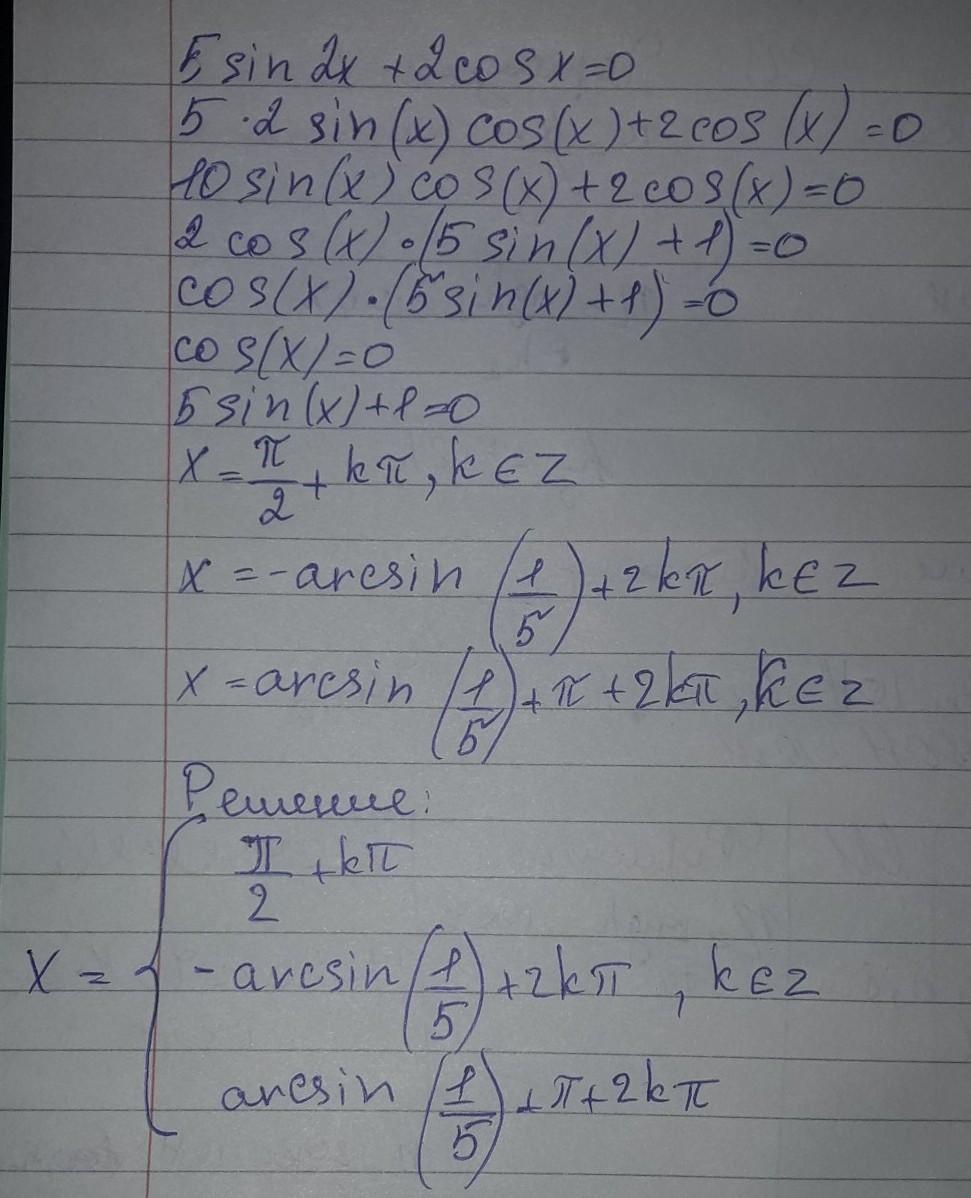 5 sin 2x + 2 cos x = 0
5 · 2 sin(x) cos(x) + 2 cos(x) = 0
10 sin(x) cos(x) + 2 cos(x) = 0
2 cos(x) · (5 sin(x) + 1) = 0
cos(x) · (5 sin(x) + 1) = 0
cos(x) = 0
5 sin(x) + 1 = 0
x = π/2 + kπ, k ∈ Z
x = -arcsin (1/5) + 2kπ, k ∈ Z
x = arcsin (1/5) + π + 2kπ, k ∈ Z
Решение:
π/2 + kπ
x = { -arcsin (1/5) + 2kπ , k ∈ Z
arcsin (1/5) + π + 2kπ